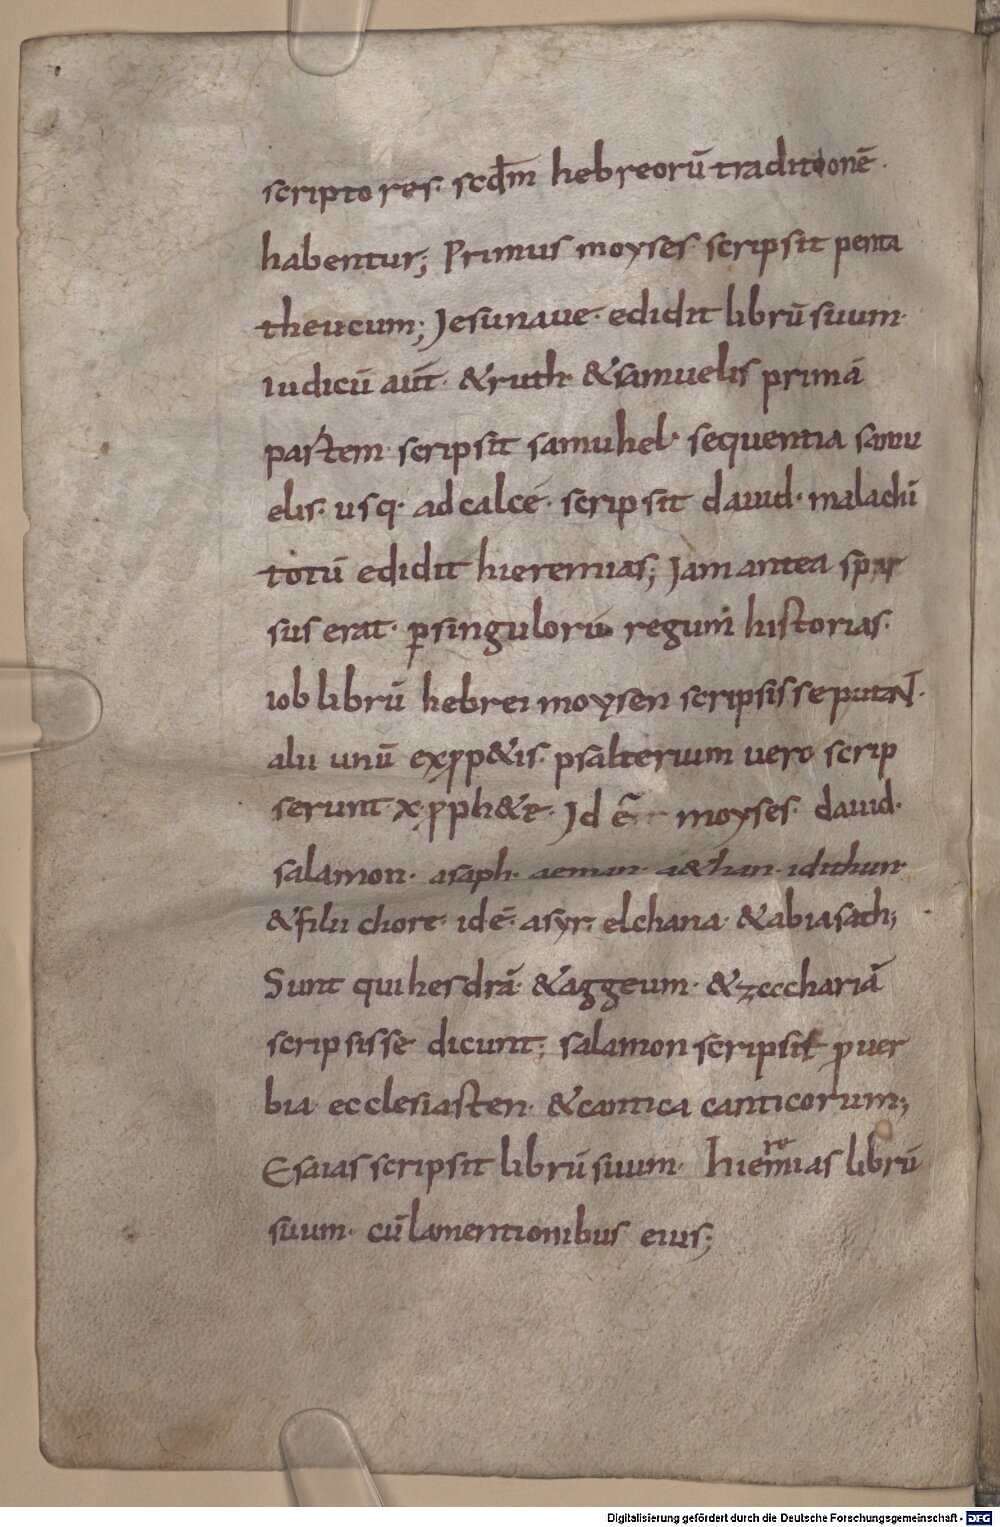 scriptores· scdm̄ hebreorū traditionē·
habentur; Primus moyses scripsit penta
theucum; Jesunaue· edidit librū suum·
iudicū aūt· &ruth· &samuelis primā
partem· scripsit samuhel· sequentia samu
elis· usq· adcalcē· scripsit dauid· malachī
totū edidit hieremias; Jam antea spar
sus erat· ꝑsingulorū regum historias·
iob librū hebrei moysen scripsisse putaN̄·
alii unū exꝓp&is· psalterium uero scrip
serunt x·ꝓph&e· Jd ē· moyses· dauid·
salamon· asaph· aeman· a&han· idithun·
&filii chore· id ē· asyr· elchana· &abiasath;
Sunt qui hesdrā· &aggeum· &zecchariā
scripsisse dicunt; salamon scripsit ꝓuer
bia ecclesiasten· &cantica canticorum;
Esaias scripsit librū suum· hieremias librū
suum· cū lamentionibus eius;
Digitalisierung gefördert durch die Deutsche Forschungsgemeinschaft - DFG